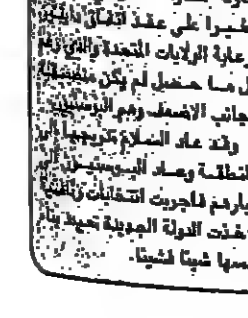 على عقد اتفاق دايتون
رعاية الولايات المتحدة والتي رغم
ما حصل لم يكن
جانب الأضعف وهم البوسنيون
وقد عاد السلام تدريجيا إلى
المنطقة وعاد البوسنيون إلى
ديارهم فأجريت انتخابات
الدولة الجديدة تعيد بناء
نفسها شيئا فشيئا.